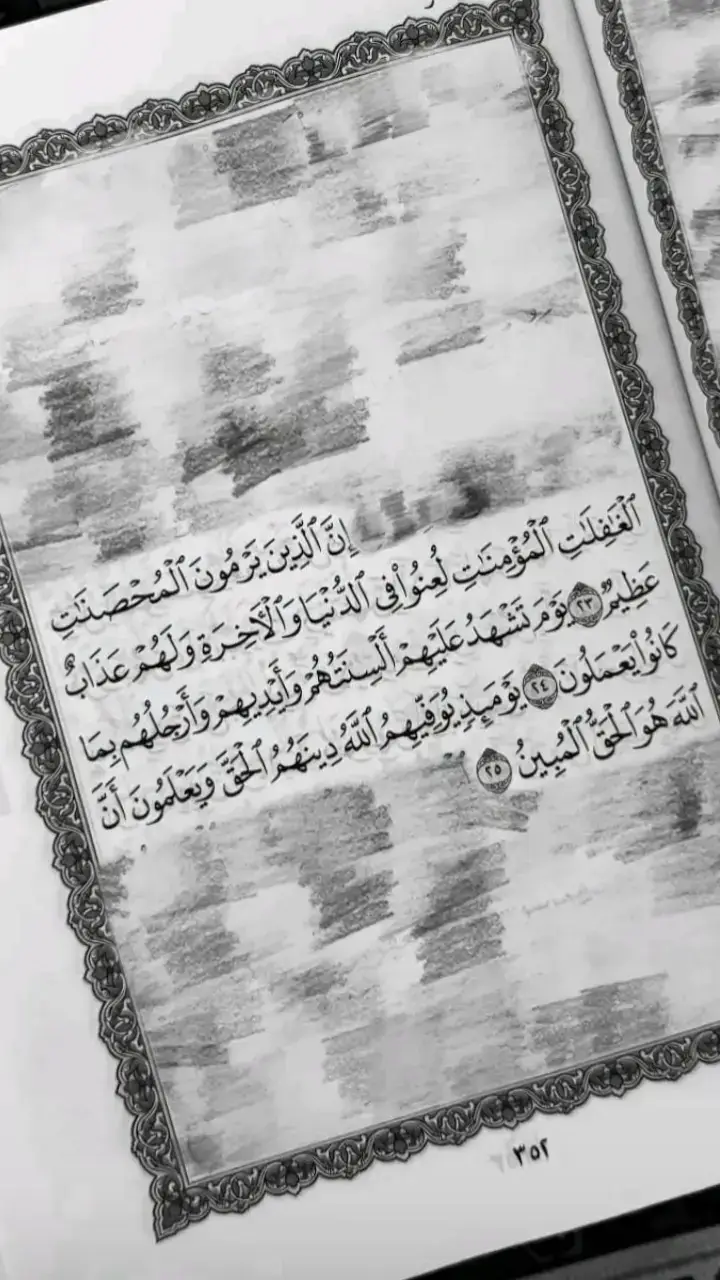 إِنَّ ٱلَّذِينَ يَرْمُونَ ٱلْمُحْصَنَٰتِ
ٱلْغَٰفِلَٰتِ ٱلْمُؤْمِنَٰتِ لُعِنُوا۟ فِى ٱلدُّنْيَا وَٱلْأَخِرَةِ وَلَهُمْ عَذَابٌ
عَظِيمٌ ٢٣ يَوْمَ تَشْهَدُ عَلَيْهِمْ أَلْسِنَتُهُمْ وَأَيْدِيهِمْ وَأَرْجُلُهُم بِمَا
كَانُوا۟ يَعْمَلُونَ ٢٤ يَوْمَئِذٍ يُوَفِّيهِمُ ٱللَّهُ دِينَهُمُ ٱلْحَقَّ وَيَعْلَمُونَ أَنَّ
ٱللَّهَ هُوَ ٱلْحَقُّ ٱلْمُبِينُ ٢٥
٣٥٢